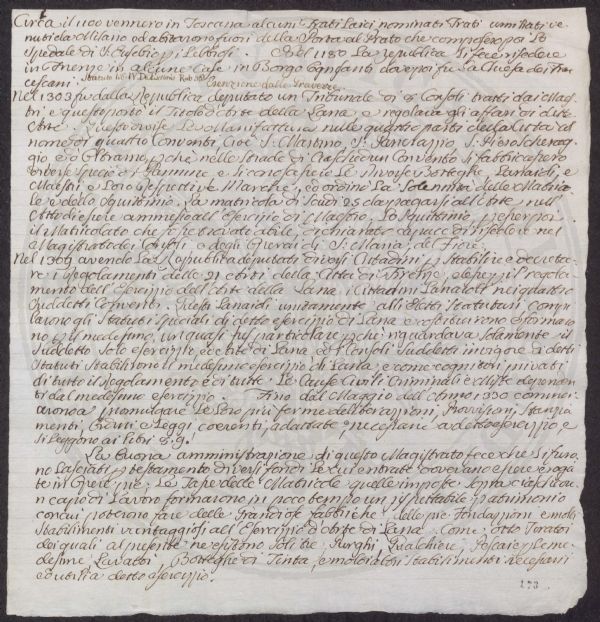 Circa il 1100 vennero in Toscana alcuni Frati Laici nominati Frati umiliati ve-
nuti da Milano ed abitarono fuori della Porta al Prato che comprese poi lo
Spedale di S. Eusebio pi Lebbrosi. Nel 1180 La republica
in Firenze in alcune Case in Borgo Ognisanti da poi fu La Chiesa dei Fran-
cescani.
Esenzione dalle Gravezze
Nel 1303 fu dalla Republica deputato un Tribunale di 8 Consoli tratti dai Maes-
tri e questo sotto il Titolo d'Arte della Lana, e regolava gli affari di d.a
Arte. Questo divise Le Manifatture nelle quattro parti della Città col
nome di quattro Conventi, Cioè S. Martino, S. Pancrazio, S. Piero Scherag-
gio, e d'Oltrarno, perchè nelle Strade di Ciaschedun Convento si fabbricassero
diverse specie di Pannine, e si conoscessero Le diverse Botteghe, Lanaioli, e
Maestri, e Loro respettive Marche, ed ordinò La Solennità della Matrico-
la e dello squittinio. La matricola di Scudi 25 da pagarsi all'Arte nell'
Atto di essere ammesso all'Esercizio di Maestro, Lo Squittinio per
il Matricolato che
Magistrato dei Consoli, o degli Operai di S. Maria del Fiore.
Nel 1309 avendo La Republica deputati diversi Cittadini p Stabilire e decreta-
re i regolamenti delle 21 Arti della Città di Firenze, elesse p il regola-
mento dell'Esercizio dell'Arte della Lana i Cittadini Lanaioli nei quattro
Suddetti Conventi. Questi Lanaioli unitamente alli Eletti Statutari compi-
larono gli Statuti speciali di detto esercizio di Lana, e costituirono e formaro-
no il medesimo, un quasi Jus particolare perchè riguardava Solamente il
Suddetto Solo esercizio ed Arte di Lana, e i Consoli Suddetti in vigore di detti
Statuti Stabilirono il medesimo esercizio di Lana, e come cognitori privati
di tutto il Regolamento e di tutte Le Cause Civili Criminali e Miste dependen-
ti dal medesimo esercizio. Fino dal Maggio dell'Anno 1330 comin-
ciarono a promulgare Le Loro più ferme deliberazioni, Provvisioni, Stanzia-
menti, Decreti e Leggi coerenti, adattate, necessarie a detto esercizio e
si Leggono ai Libri
La buona amministrazione di questo Magistrato fece che si furo-
no Lasciati p testamento diversi fondi Le cui entrate dovevano essere eroga-
te in Opere pie; Le Tasse delle Matricole quelle imposte sopra ciascheun-
n capo di Lavoro formarono in poco tempo un rispettabile patrimonio
con cui poterono fare delle Grandiose fabbriche, delle pie Fondazioni e molti
Stabilimenti vantaggiosi all'Esercizio d'Arte di Lana, Come: otto Tiratoi
dei quali al presente ne esistono Soli tre, Purghi, Gualchiere, Pescaie p Le me-
desime, Lavatoi, Botteghe di Tinta, e molti altri Stabilimenti necessari
ed utili a detto esercizio.
173